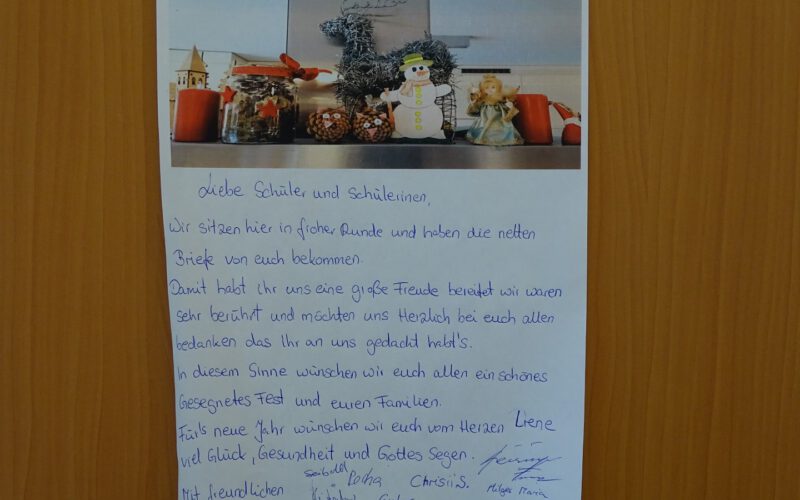 Liebe Schüler und Schülerinen,
Wir sitzen hier in froher Runde und haben die netten
Briefe von euch bekommen.
Damit habt ihr uns eine große Freude bereitet wir waren
sehr berührt und möchten uns Herzlich bei euch allen
bedanken das Ihr an uns gedacht habt's.
In diesem Sinne wünschen wir euch allen ein schönes
Gesegnetes Fest und euren Familien.
Für's neue Jahr wünschen wir euch vom Herzen Liene
viel Glück, Gesundheit und Gottes Segen.
Chrisii S.
Maria
Mit freundlichen